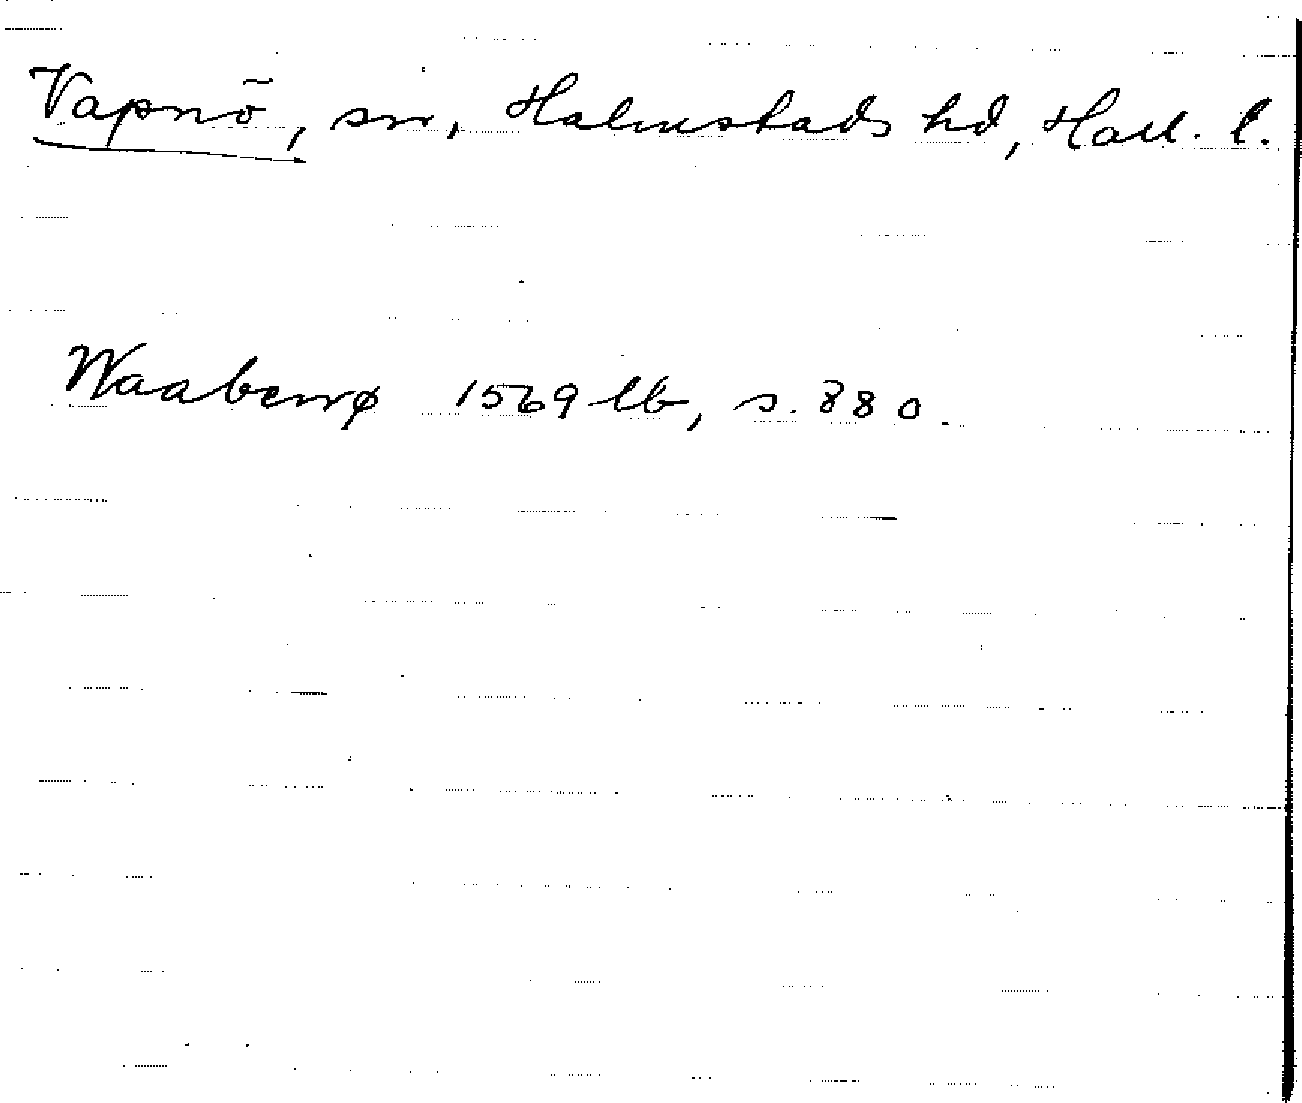 Vapnö, sn, Halmstads hd, Hall. l.
Waabenrø 1569 lb, s. 880.